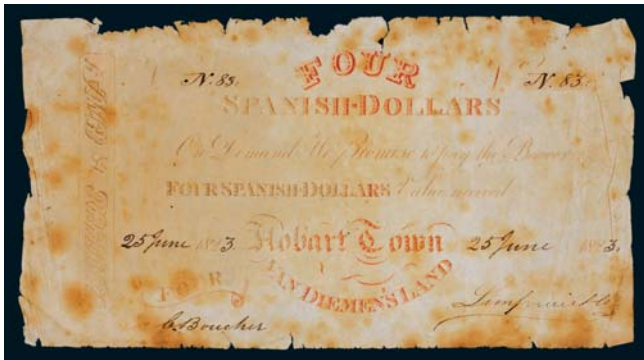 FOUR
N. 83. N. 83.
SPANISH-DOLLARS
On Demand We Promise to pay the Bearer
FOUR SPANISH-DOLLARS Value received
25 June 1823. Hobart Town 25 June 1823.
VAN DIEMEN'S LAND
FOUR
C. Boucher